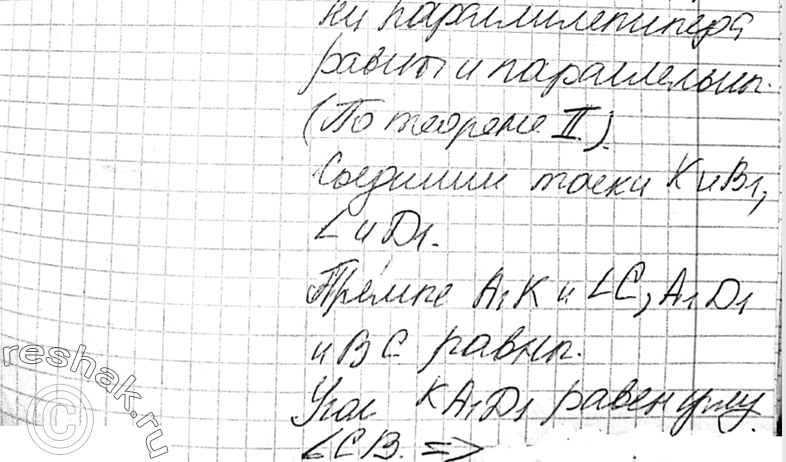 ки параллилепипеда
равны и параллельны.
(По теореме II.)
Соединим точки K и B1,
L и D1.
Прямые A1K и LC, A1D1
и BC равны.
Угол KA1D1 равен углу
LCB. =>
reshak.ru
©